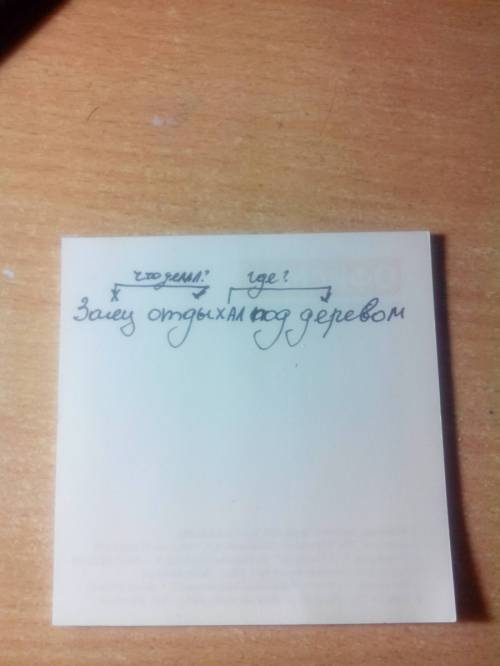 что делал? где?
Заяц отдыхал под деревом